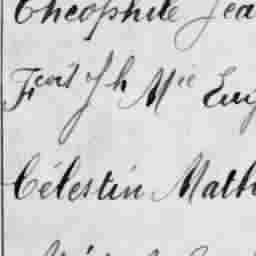 Théophile Jea
Fçois Jh Mie Eug
Célestin Math